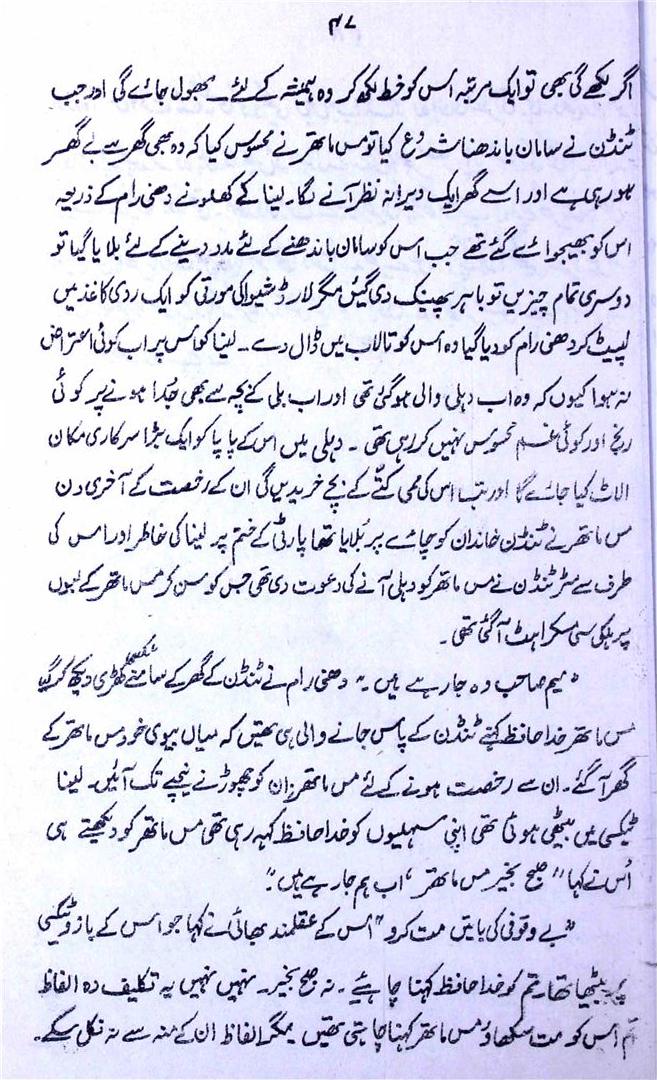 ۴۷
اگر لکھے گی بھی تو ایک مرتبہ اس کو خط لکھ کر وہ ہمیشہ کے لئے بھول جائے گی اور جب
ٹنڈن نے سامان باندھنا شروع کیا تو مس ماتھر نے محسوس کیا کہ وہ بھی گھر سے بے گھر
ہو رہی ہے اور اسے گھر ایک ویرانہ نظر آنے لگا۔ لینا کے کھلونے دھنی رام کے ذریعہ
اس کو بھیجوائے گئے تھے جب اس کو سامان باندھنے کے لئے مدد دینے کے لئے بلایا گیا تو
دوسری تمام چیزیں تو باہر پھینک دی گئیں مگر لارڈ شیوا کی مورتی کو ایک ردی کاغذ میں
لپیٹ کر دھنی رام کو دیا گیا وہ اس کو تالاب میں ڈال دے۔ لینا کو اس پر اب کوئی اعتراض
نہ ہوا کیوں کہ وہ اب دہلی والی ہو گئی تھی اور اب بلی کے بچہ سے بھی جُدا ہونے پر کوئی
رنج اور کوئی غم محسوس نہیں کر رہی تھی۔ دہلی میں اس کے پاپا کو ایک بڑا سرکاری مکان
الاٹ کیا جائے گا اور تب اس کی ممی کتّے کے بچے خریدیں گی ان کے رخصت کے آخری دن
مس ماتھر نے ٹنڈن خاندان کو چائے پر بُلایا تھا پارٹی کے ختم پر لینا کی خاطر اور اس کی
طرف سے مسٹر ٹنڈن نے مس ماتھر کو دہلی آنے کی دعوت دی تھی جس کو سن کر مس ماتھر کے لبوں
پر ہلکی سی مسکراہٹ آ گئی تھی۔
"میم صاحب وہ جا رہے ہیں۔" دھنی رام نے ٹنڈن کے گھر کے سامنے ٹیکسی کھڑی دیکھ کر کہا
مس ماتھر خدا حافظ کہنے ٹنڈن کے پاس جانے والی ہی تھیں کہ میاں بیوی خود مس ماتھر کے
گھر آ گئے۔ ان سے رخصت ہونے کے لئے مس ماتھر ان کو چھوڑنے نیچے تک آئیں۔ لینا
ٹیکسی میں بیٹھی ہوئی تھی اپنی سہلیوں کو خدا حافظ کہہ رہی تھی مس ماتھر کو دیکھتے ہی
اُس نے کہا "صبح بخیر مس ماتھر، اب ہم جا رہے ہیں"۔
"بے وقوفی کی باتیں مت کرو" اس کے عقلمند بھائی نے کہا جو اس کے بازو ٹیکسی
پر بیٹھا تھا۔ تم کو خدا حافظ کہنا چاہئیے۔ نہ صبح بخیر۔ نہیں نہیں یہ تکلیف دہ الفاظ
تم اس کو مت سکھاؤ مس ماتھر کہنا چاہتی تھیں مگر الفاظ ان کے منہ سے نہ نکل سکے۔